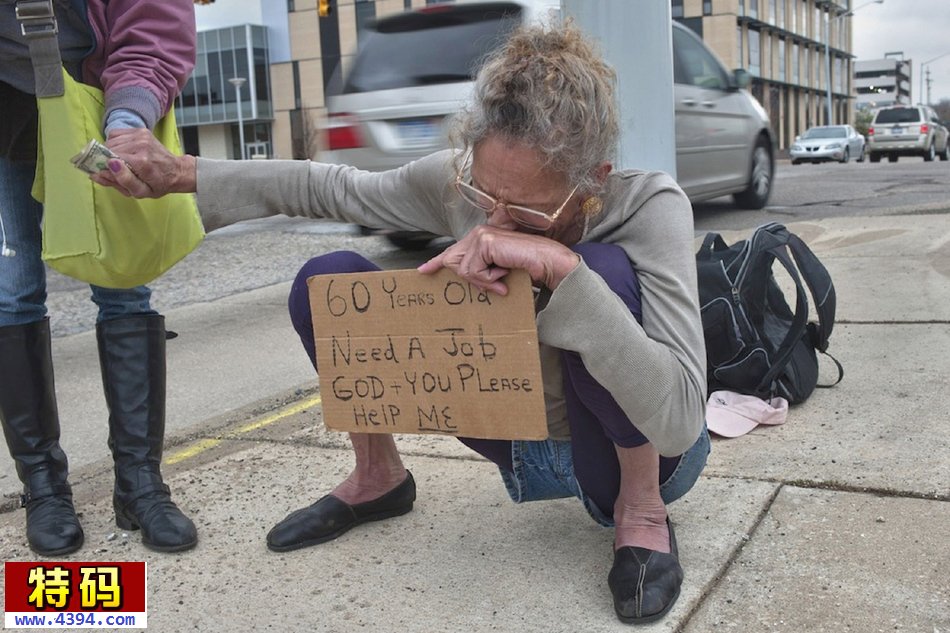 60 Years Old
Need A Job
GOD + YOU PLease
Help Me
特码
www.4394.com